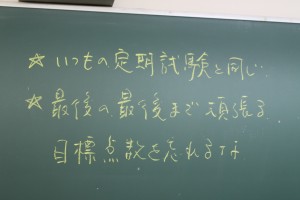 ☆いつもの定期試験と同じ
☆最後の最後まで頑張る
目標点数を忘れるな